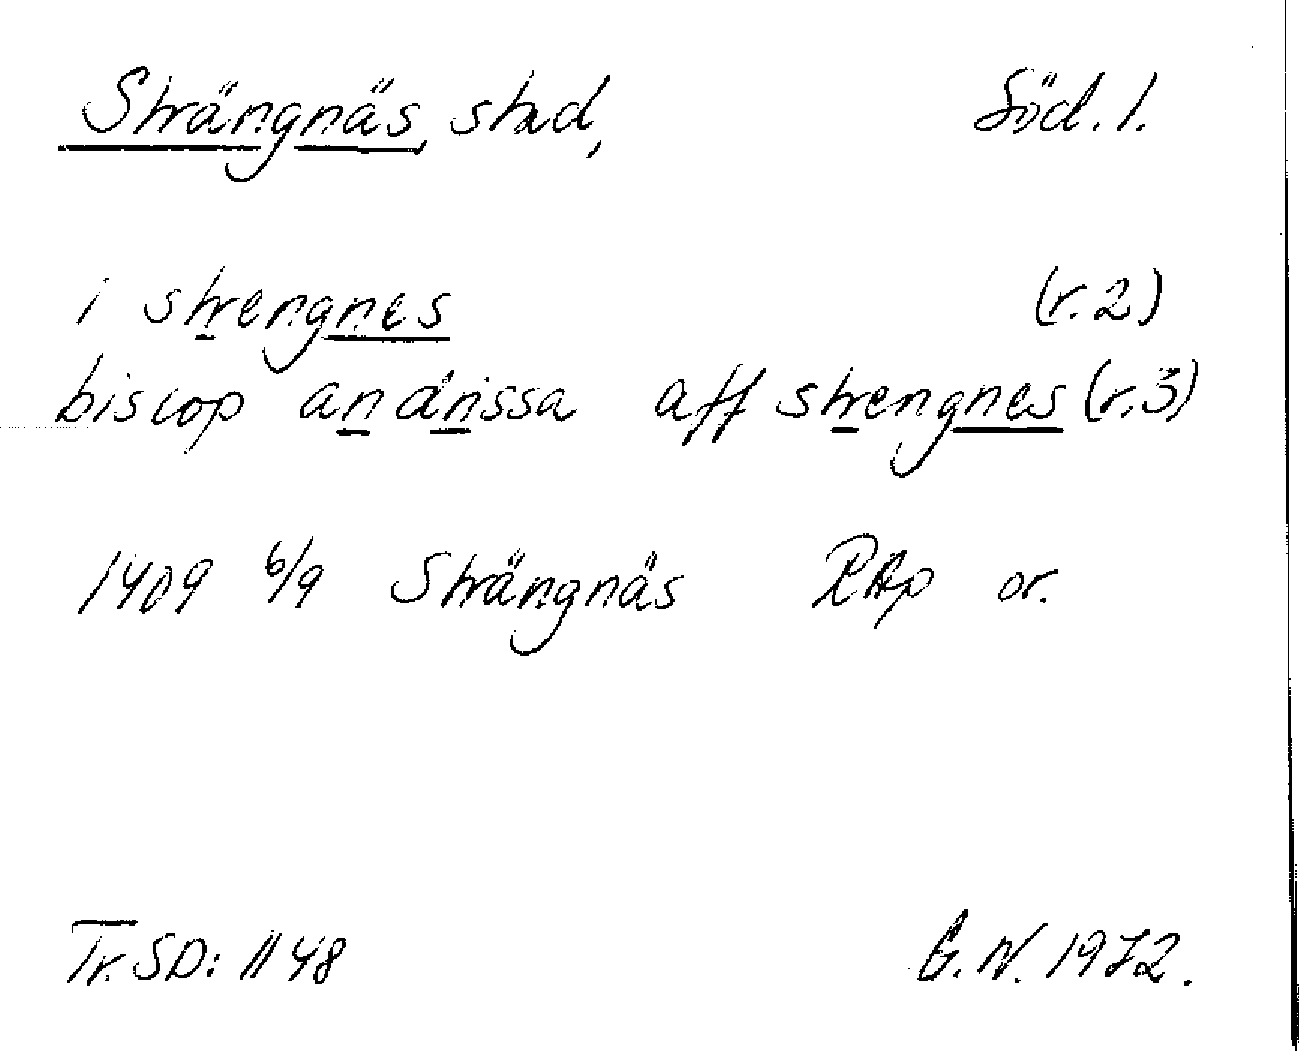 Strängnäs, stad, Söd. l.
i strengnes (r.2)
biscop andrissa aff strengnes (r.3)
1409 6/9 Strängnäs RAp or.
Tr. SD: 1148
G. N. 1972.